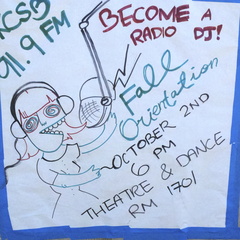 KCSB
91.9 FM
BECOME A
RADIO DJ!
Fall
Orientation
OCTOBER 2ND
6 PM
THEATRE & DANCE
RM 1701